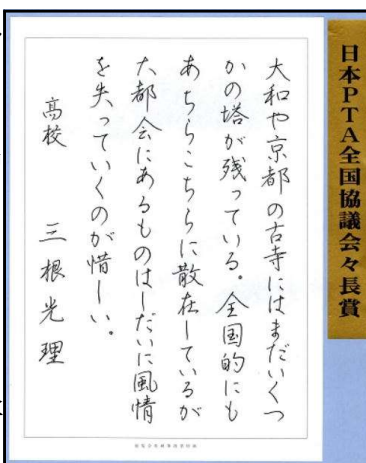 日本PTA全国協議会々長賞
大和や京都の古寺にはまだいくつ
かの塔が残っている。全国的にも
あちらこちらに散在しているが
大都会にあるものはしだいに風情
を失っていくのが惜しい。
高校 三根光理